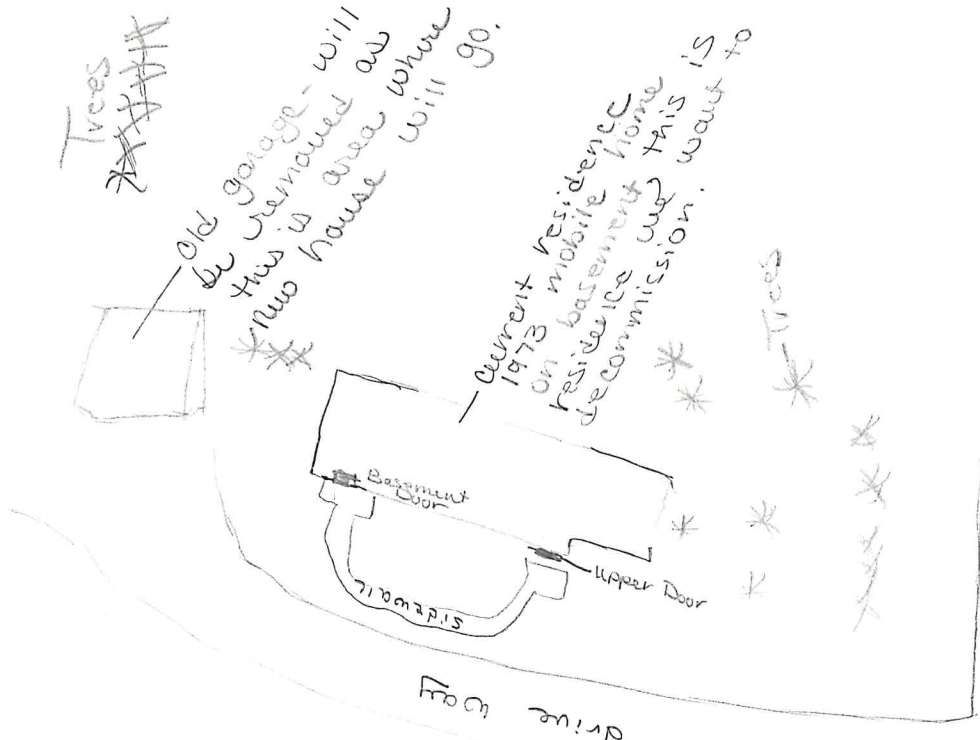 Trees
Old garage - will
be removed as
this is area where
new house will go.
Current residence
1973 mobile home
on basement this is
residence we want to
decommission.
Trees
Basement
Door
Upper Door
sidewalk
drive way